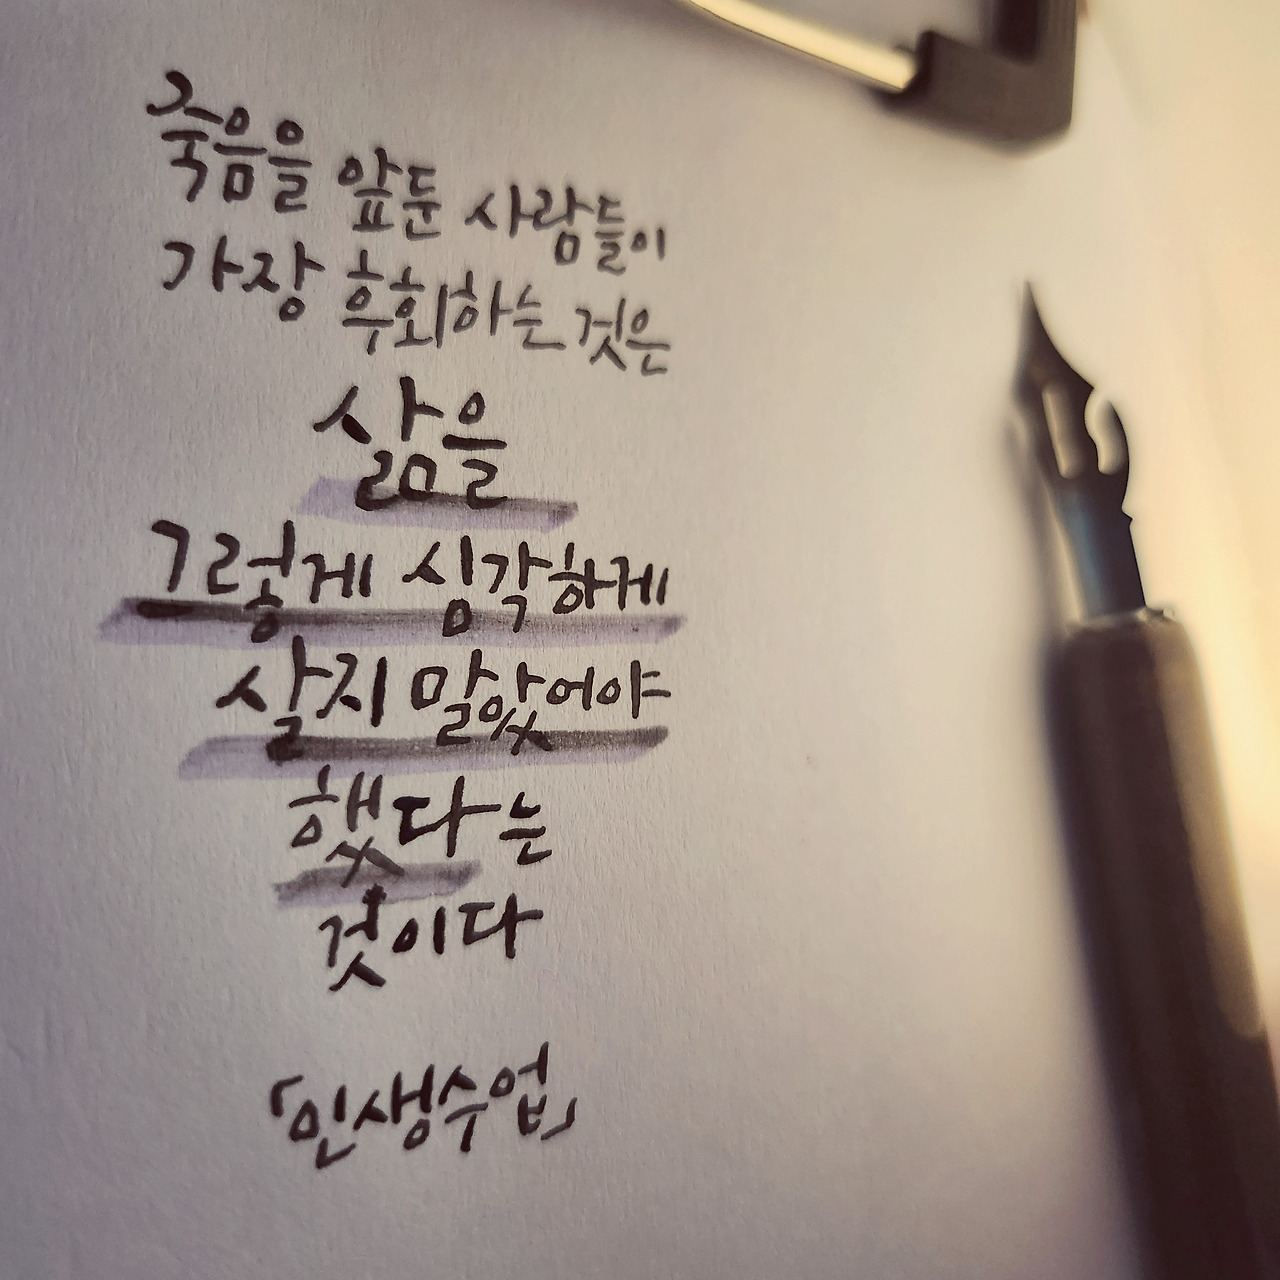 죽음을 앞둔 사람들이
가장 후회하는 것은
삶을
그렇게 심각하게
살지 말았어야
했다는
것이다
「인생수업」